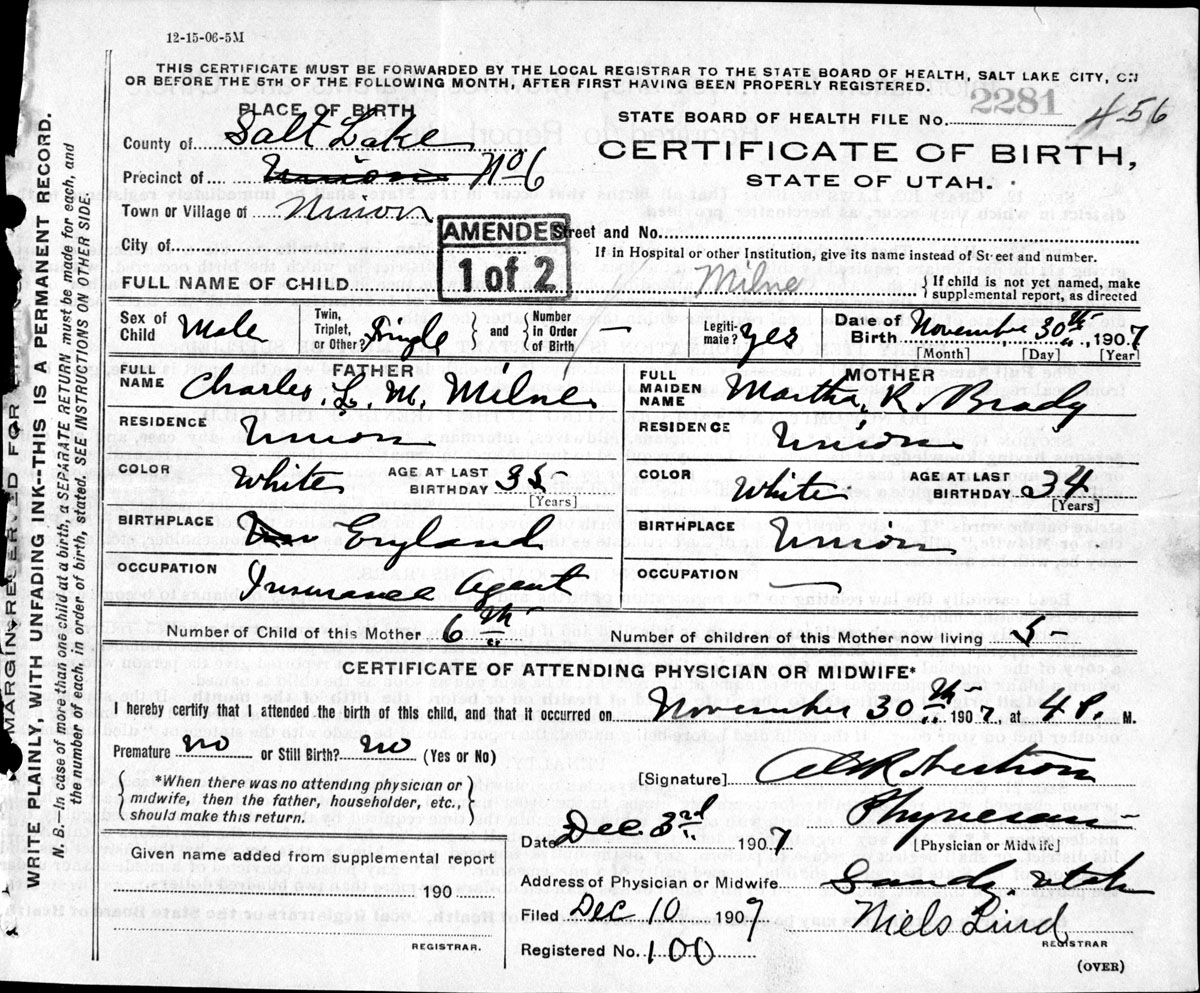 12-15-06-5M
THIS CERTIFICATE MUST BE FORWARDED BY THE LOCAL REGISTRAR TO THE STATE BOARD OF HEALTH, SALT LAKE CITY, ON
OR BEFORE THE 5TH OF THE FOLLOWING MONTH, AFTER FIRST HAVING BEEN PROPERLY REGISTERED.
PLACE OF BIRTH
STATE BOARD OF HEALTH FILE No. 2281 456
County of Salt Lake
CERTIFICATE OF BIRTH,
Precinct of Union No 6
STATE OF UTAH.
Town or Village of Union
AMENDED
1 of 2
Street and No.
City of
If in Hospital or other Institution, give its name instead of Street and number.
FULL NAME OF CHILD Milne
If child is not yet named, make
supplemental report, as directed
Sex of Child Male
Twin, Triplet, or Other? Single and Number in Order of Birth —
Legitimate? yes
Date of Birth November 30th, 1907
[Month] [Day] [Year]
FATHER
FULL NAME Charles. L. M. Milne
RESIDENCE Union
COLOR White AGE AT LAST BIRTHDAY 35
[Years]
BIRTHPLACE England
OCCUPATION Insurance Agent
MOTHER
FULL MAIDEN NAME Martha. R. Brady
RESIDENCE Union
COLOR White AGE AT LAST BIRTHDAY 34
[Years]
BIRTHPLACE Union
OCCUPATION —
Number of Child of this Mother 6th
Number of children of this Mother now living 5
CERTIFICATE OF ATTENDING PHYSICIAN OR MIDWIFE*
I hereby certify that I attended the birth of this child, and that it occurred on November 30th 1907, at 4 P. M.
Premature no or Still Birth? no (Yes or No)
*When there was no attending physician or
midwife, then the father, householder, etc.,
should make this return.
[Signature] Robertson
Physician
[Physician or Midwife]
Date Dec. 3rd 1907
Given name added from supplemental report
190
REGISTRAR.
Address of Physician or Midwife Sandy. Utah
Filed Dec 10 1909
Niels Lind
REGISTRAR
Registered No. 100
(OVER)
MARGIN RESERVED FOR
WRITE PLAINLY, WITH UNFADING INK--THIS IS A PERMANENT RECORD.
N. B.--In case of more than one child at a birth, a SEPARATE RETURN must be made for each, and
the number of each, in order of birth, stated. SEE INSTRUCTIONS ON OTHER SIDE.